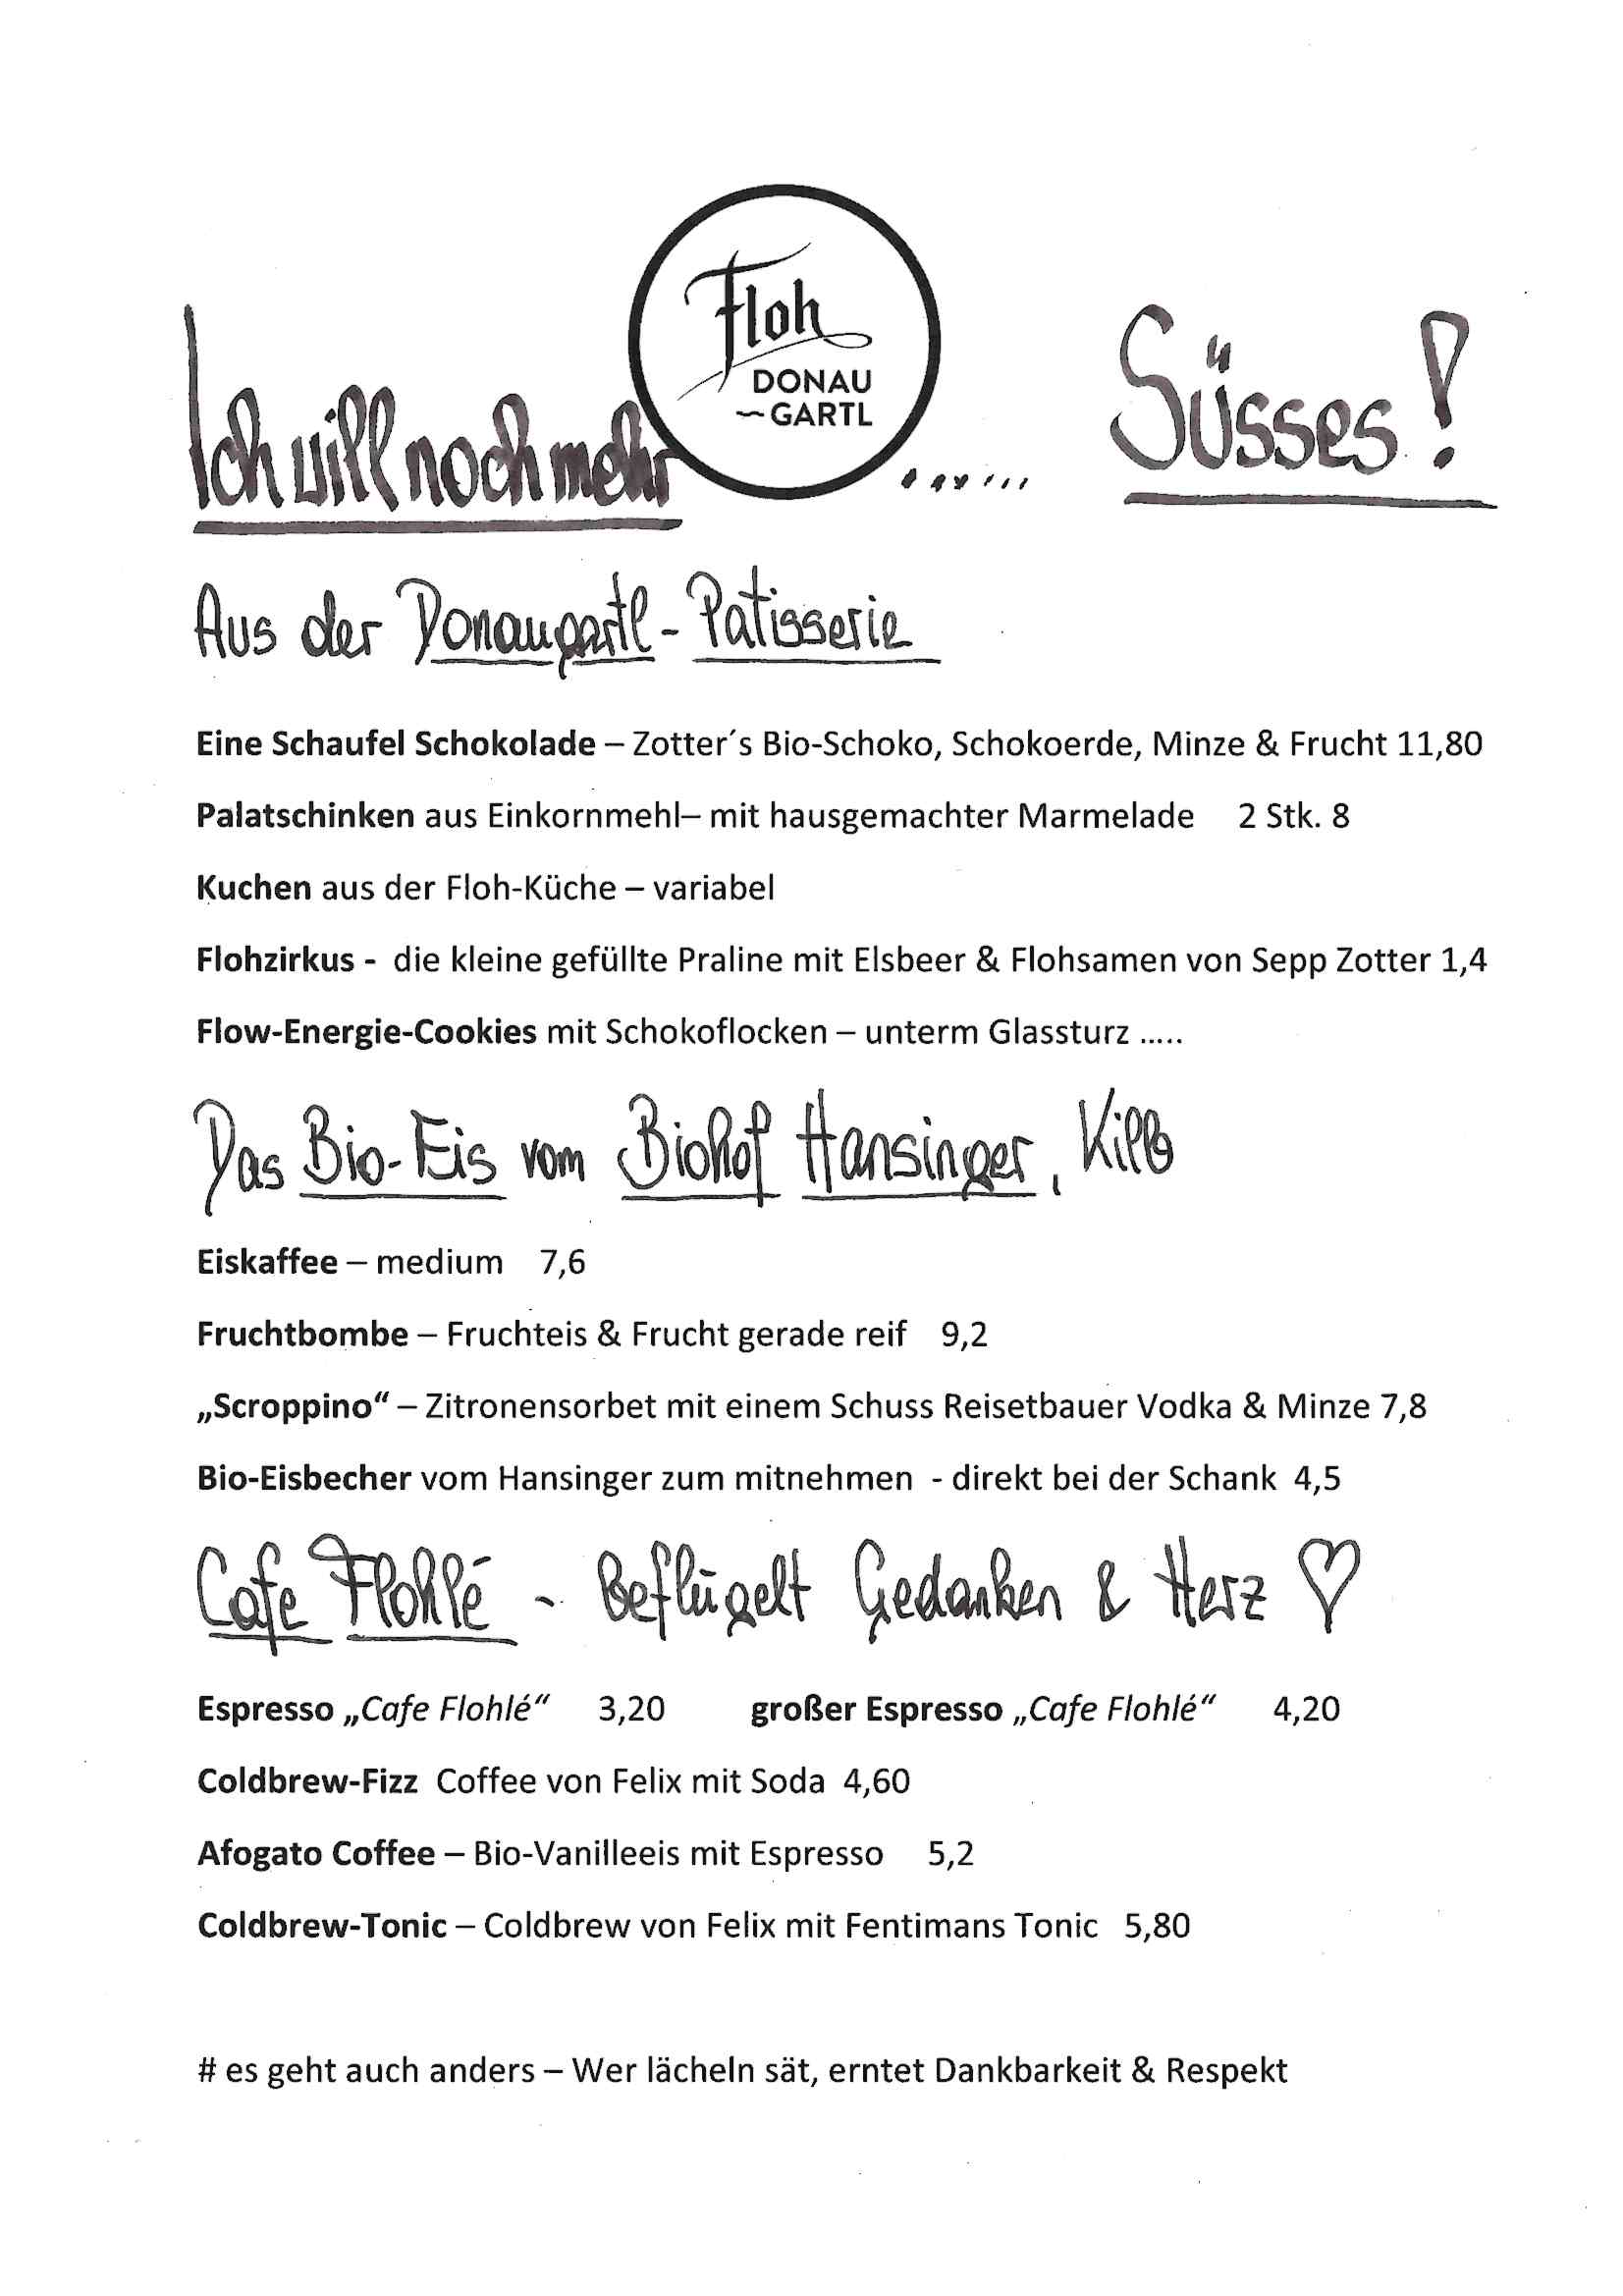 Floh
DONAU
~GARTL
Ich will noch mehr ...... Süsses!
Aus der Donaugartl-Patisserie
Eine Schaufel Schokolade – Zotter´s Bio-Schoko, Schokoerde, Minze & Frucht 11,80
Palatschinken aus Einkornmehl– mit hausgemachter Marmelade 2 Stk. 8
Kuchen aus der Floh-Küche – variabel
Flohzirkus - die kleine gefüllte Praline mit Elsbeer & Flohsamen von Sepp Zotter 1,4
Flow-Energie-Cookies mit Schokoflocken – unterm Glassturz .....
Das Bio-Eis vom Biohof Hansinger, Kilb
Eiskaffee – medium 7,6
Fruchtbombe – Fruchteis & Frucht gerade reif 9,2
„Scroppino“ – Zitronensorbet mit einem Schuss Reisetbauer Vodka & Minze 7,8
Bio-Eisbecher vom Hansinger zum mitnehmen - direkt bei der Schank 4,5
Cafe Flohlé - Beflügelt Gedanken & Herz ♡
Espresso „Cafe Flohlé“ 3,20 großer Espresso „Cafe Flohlé“ 4,20
Coldbrew-Fizz Coffee von Felix mit Soda 4,60
Afogato Coffee – Bio-Vanilleeis mit Espresso 5,2
Coldbrew-Tonic – Coldbrew von Felix mit Fentimans Tonic 5,80
# es geht auch anders – Wer lächeln sät, erntet Dankbarkeit & Respekt